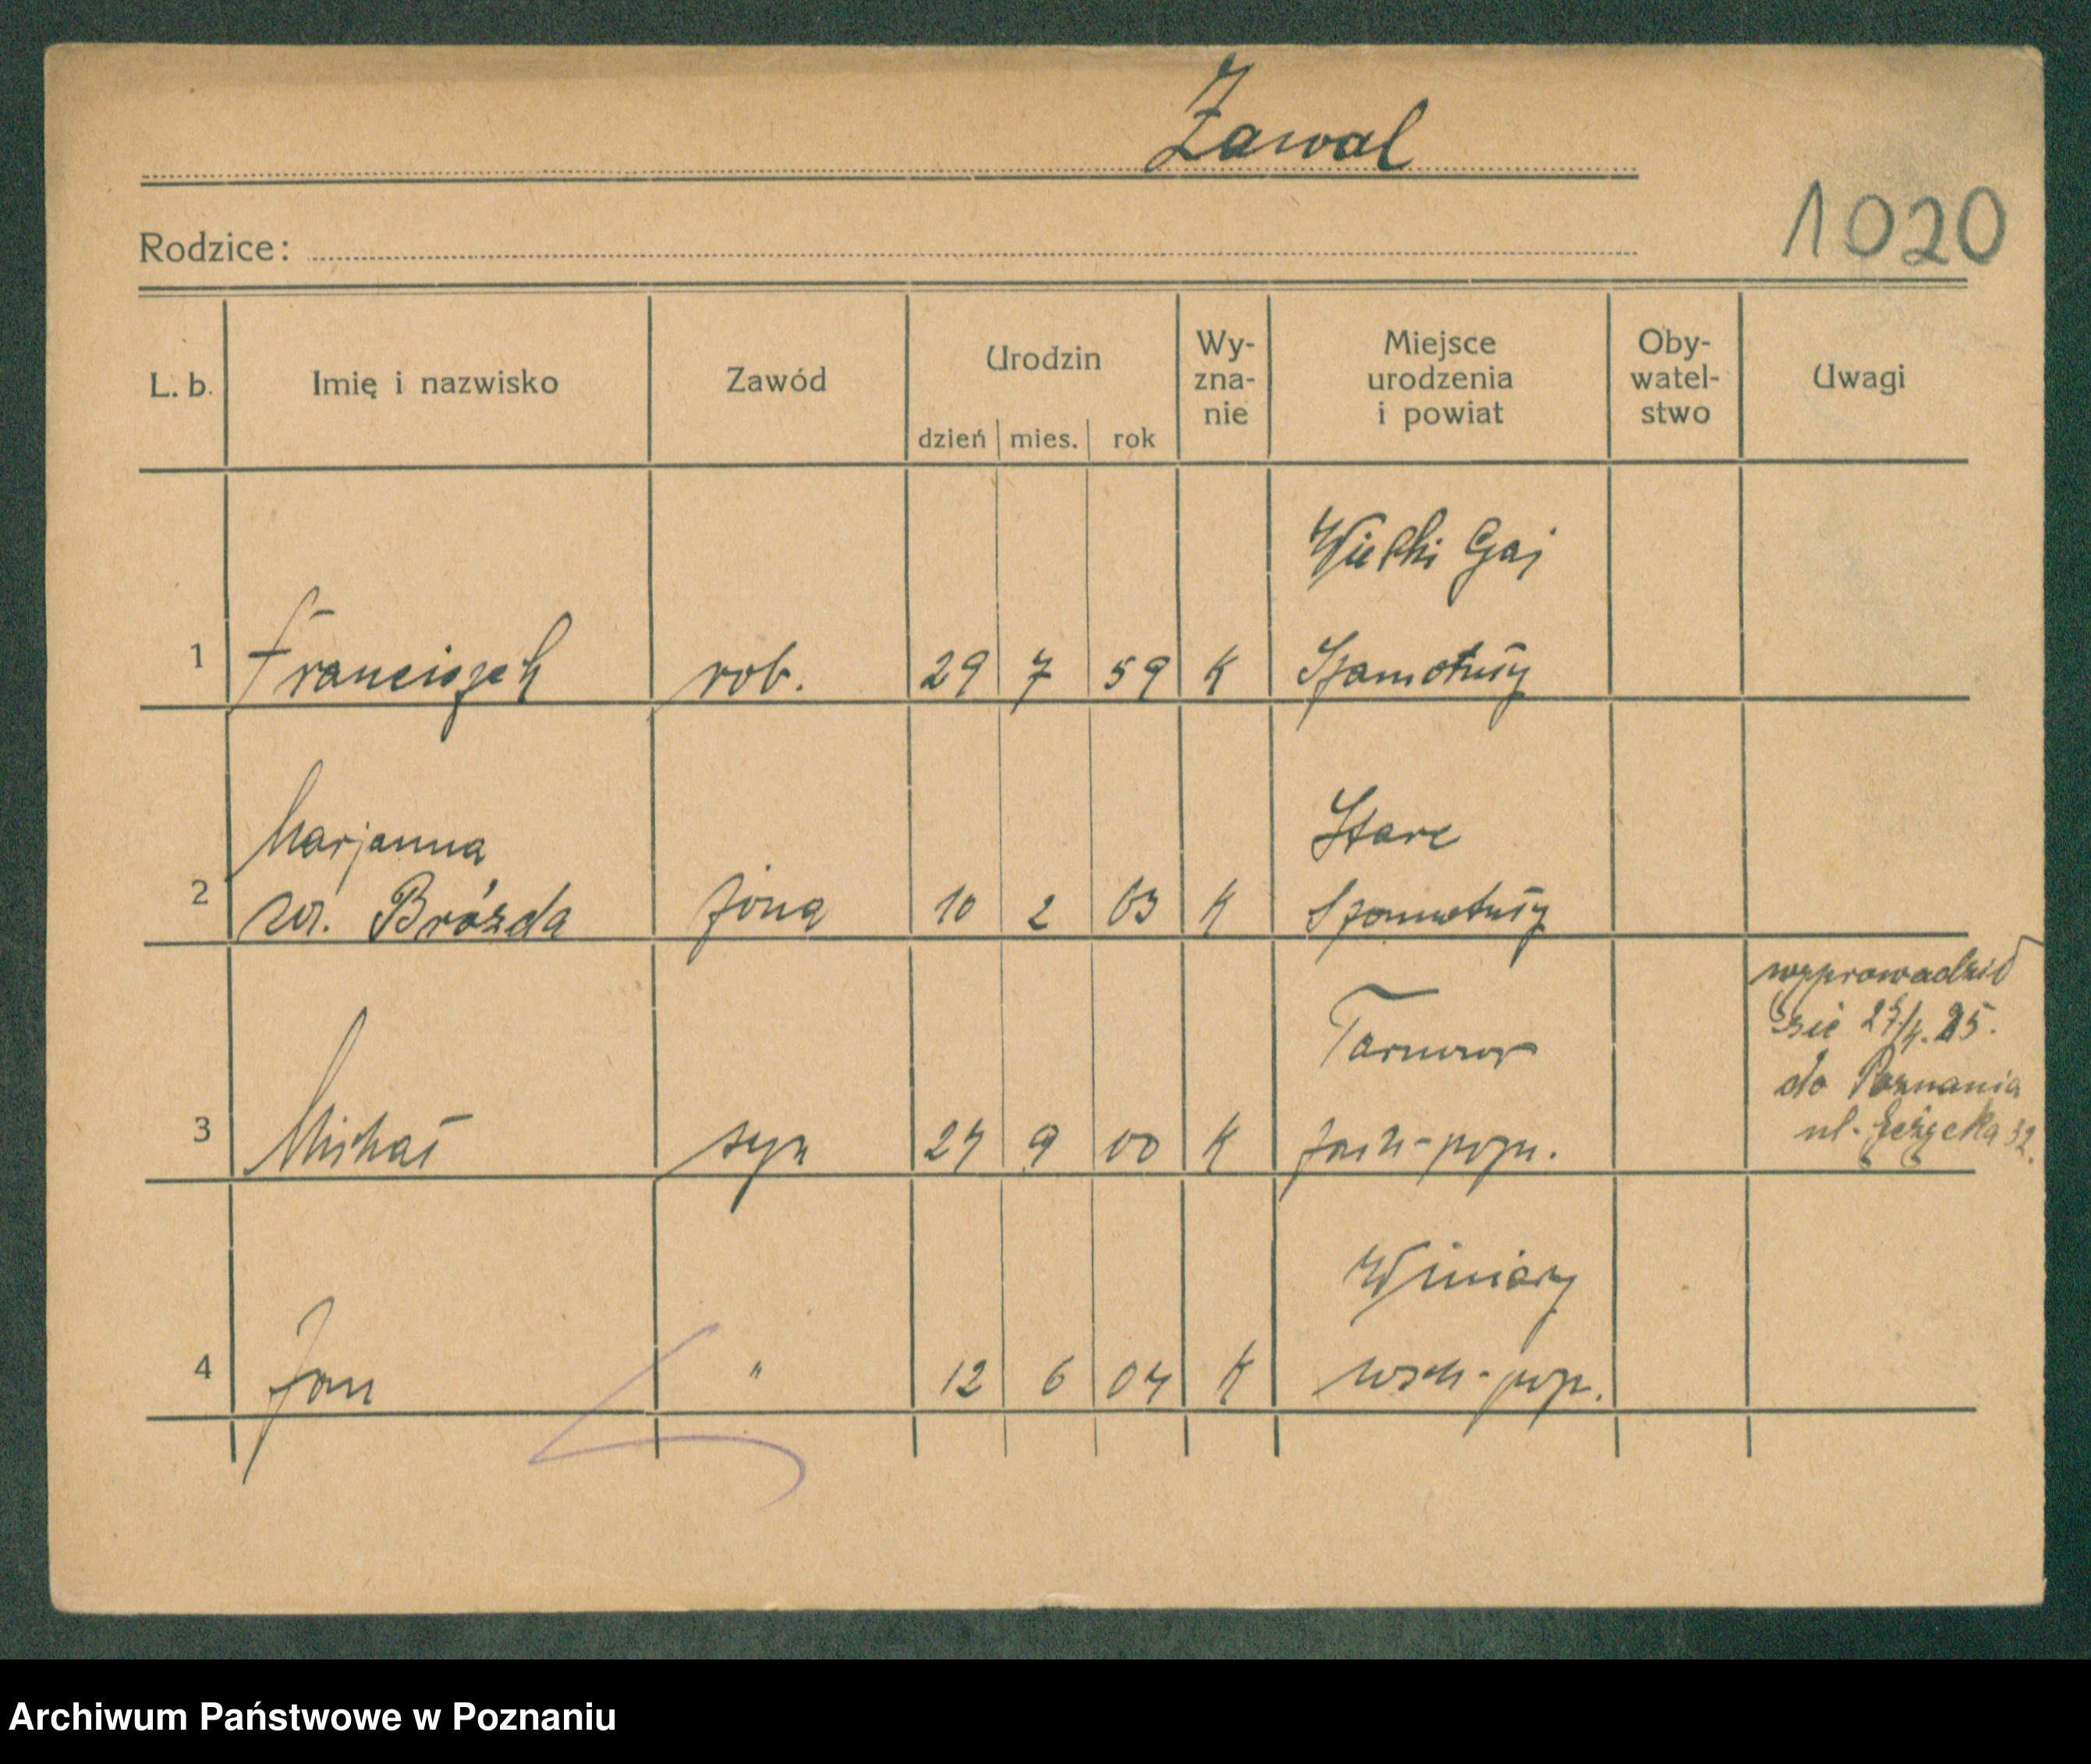 Zawal
1020
Rodzice:
L. b.
Imię i nazwisko
Zawód
Urodzin
dzień mies. rok
Wy-
zna-
nie
Miejsce
urodzenia
i powiat
Oby-
watel-
stwo
Uwagi
Wielki Gaj
1 Franciszek rob. 29 7 59 K Szamotuły
Marjanna Stare
2 ur. Brózda żona 10 2 63 K Szamotuły
Tarnowo
3 Michał syn 24 9 00 K zach-pozn.
wyprowadził
się 27/4. 25.
do Poznania
ul. Jeżycka 32.
Winiary
4 Jan " 12 6 04 K wsch-pozn.
Archiwum Państwowe w Poznaniu